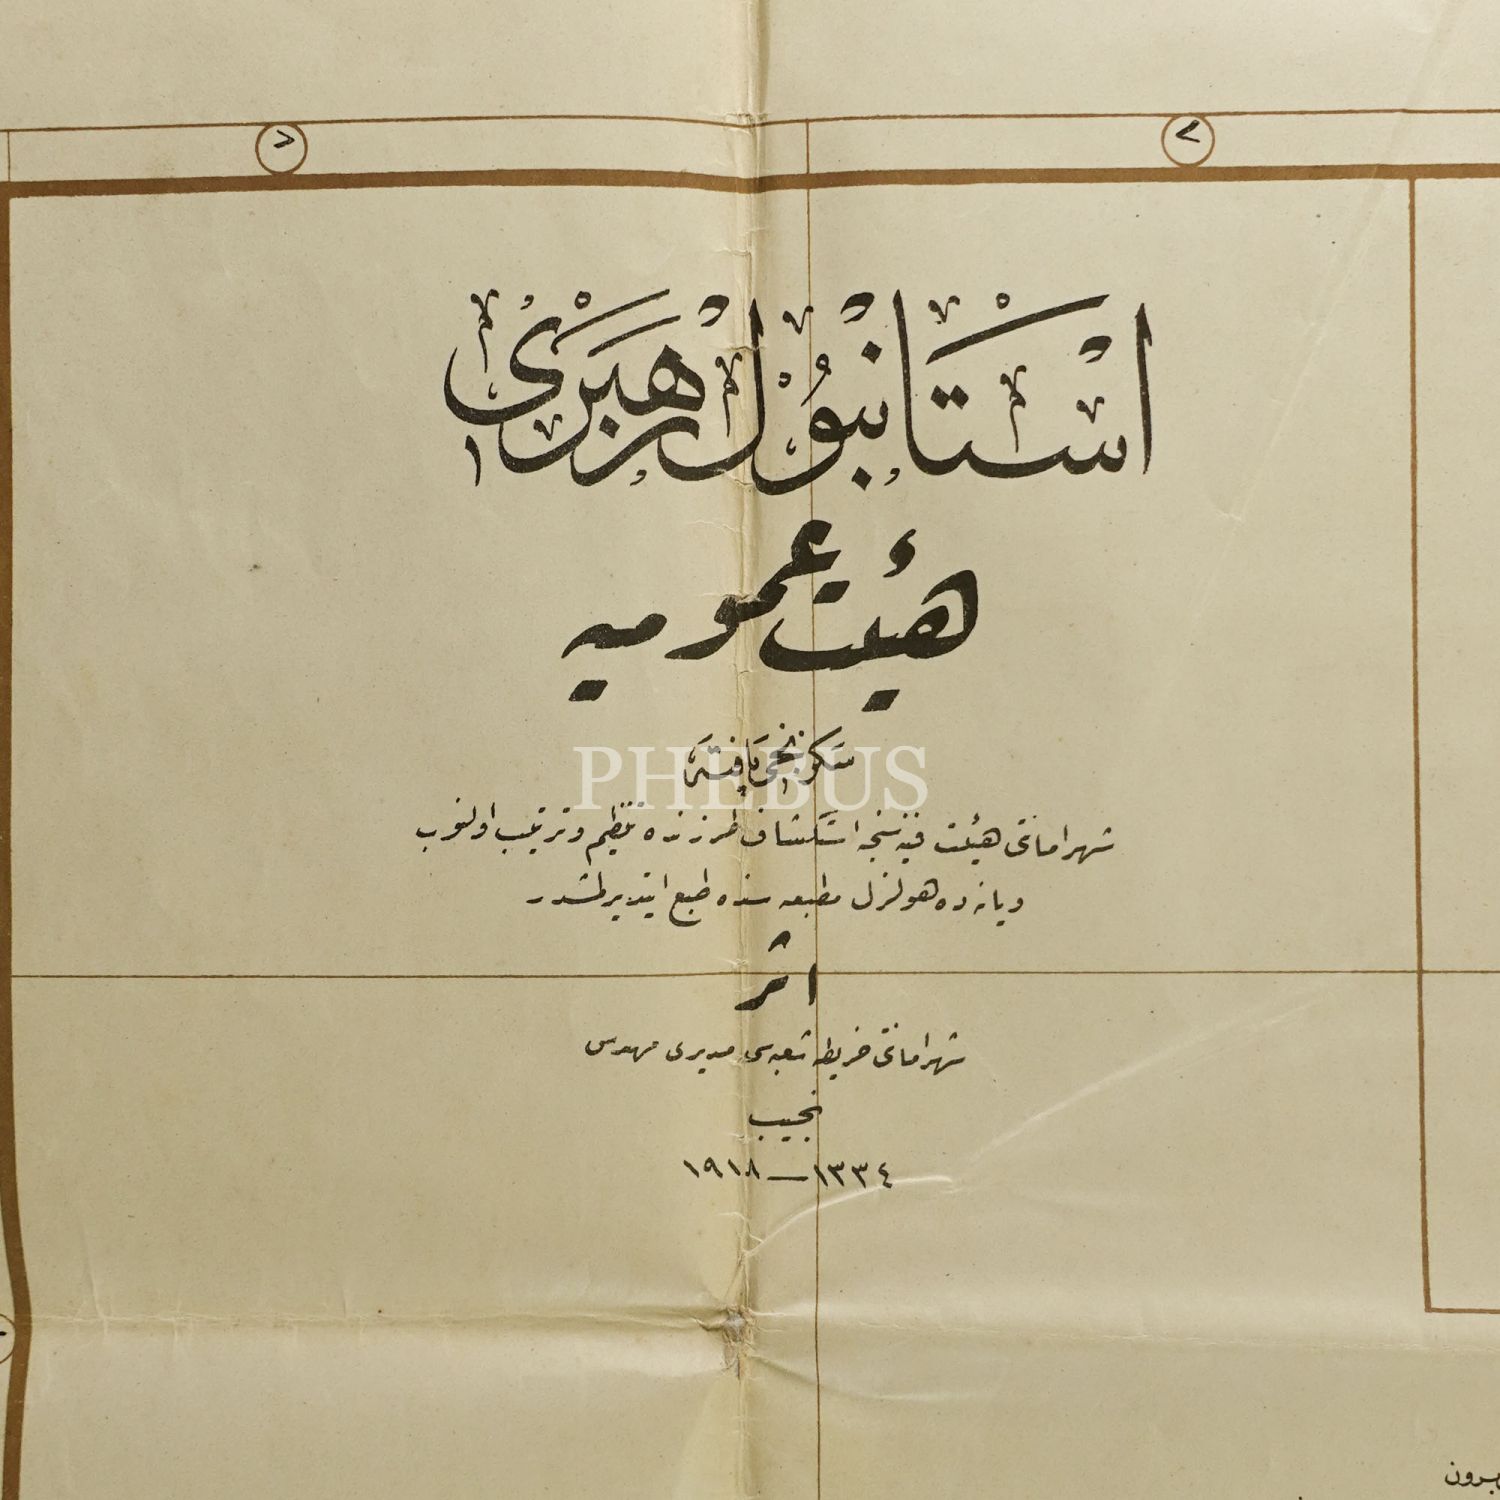 استانبول رهبری
هيئت عموميه
سكزنجی پافته
شهر امانتی هيئت فنيه‌سنجه استكشاف طرزنده تنظيم و ترتيب اولنوب
ويانه‌ده هولزل مطبعه‌سنده طبع ايتديرلمشدر
اثر
شهر امانتی خريطه شعبه‌سی مديری مهندس
نجيب
١٣٣٤ — ١٩١٨
PHEBUS